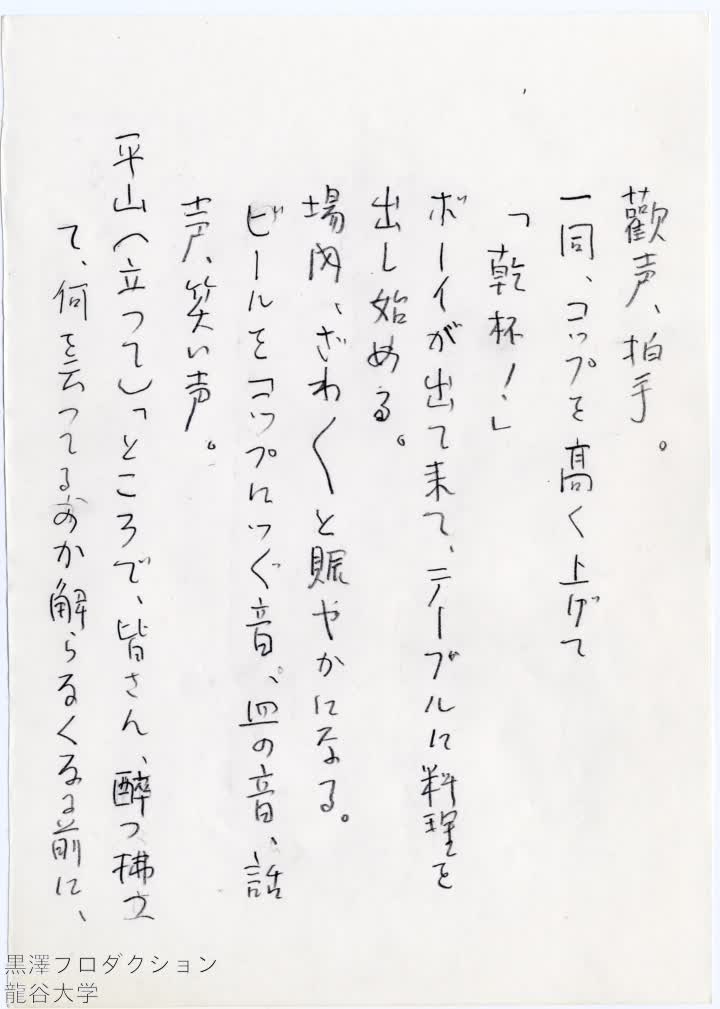 歡声、拍手。
一同、コップを高く上げて
「乾杯！」
ボーイが出て来て、テーブルに料理を
出し始める。
場内、ざわ〱と賑やかになる。
ビールをコップにつぐ音、皿の音、話
声、笑い声。
平山（立つて）「ところで、皆さん、醉つ拂つ
て、何を云つてるのか解らなくなる前に、
黒澤プロダクション
龍谷大学